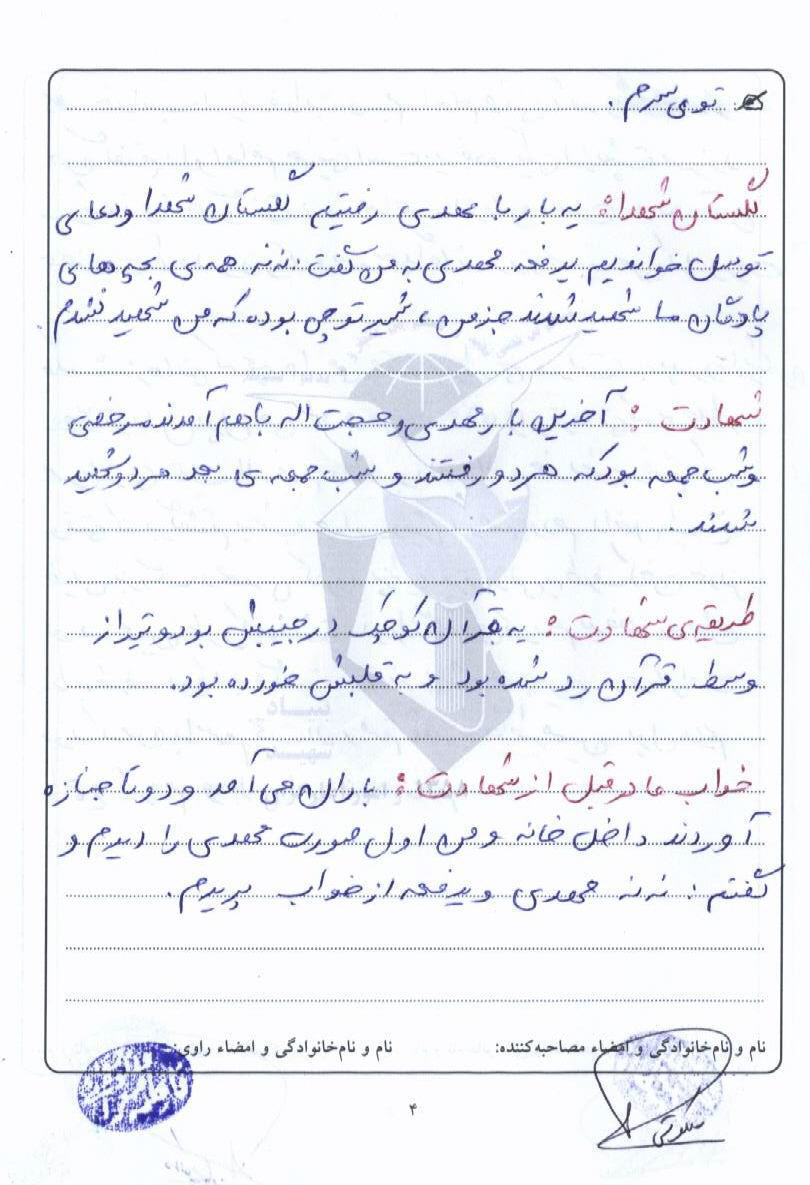 توی سرم.
گلستان شهدا: یه بار با مهدی رفتیم گلستان شهدا و دعای
توسل خواندیم یدفعه مهدی به من گفت: ننه همه‌ی بچه‌های
پادگان ما شهید شدند جز من، شیر تو چی بوده که من شهید نشدم
شهادت: آخرین بار مهدی و حجت اله باهم آمدند مرخصی
و شب جمعه بود که هر دو رفتند و شب جمعه‌ی بعد هر دو شهید
شدند.
طریقه‌ی شهادت: یه قرآن کوچک در جیبش بود و تیر از
وسط قرآن رد شده بود و به قلبش خورده بود.
خواب مادر قبل از شهادت: باران می‌آمد و دو تا جنازه
آوردند داخل خانه و من اول صورت مهدی را دیدم و
گفتم: ننه مهدی و یدفعه از خواب پریدم.
نام و نام‌خانوادگی و امضاء مصاحبه‌کننده: نام و نام‌خانوادگی و امضاء راوی:
۴